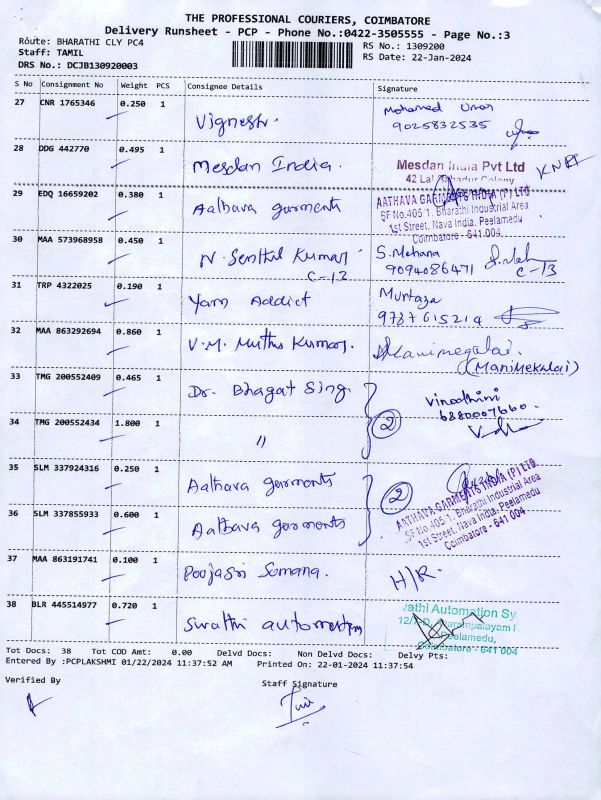 THE PROFESSIONAL COURIERS, COIMBATORE
Delivery Runsheet - PCP - Phone No.:0422-3505555 - Page No.:3
Route: BHARATHI CLY PC4
Staff: TAMIL
DRS No.: DCJB130920003
RS No.: 1309200
RS Date: 22-Jan-2024
S No Consignment No Weight PCS Consignee Details Signature
27 CNR 1765346 0.250 1 Vignesh. Mohamed Umar
9025832535
28 DDG 442770 0.495 1 Mesdan India. Mesdan India Pvt Ltd
42 Lal Bahadur Colony
29 EDQ 16659202 0.380 1 Aathava garments AATHAVA GARMENTS INDIA (P) LTD
SF No.405 1, Bharathi Industrial Area
1st Street, Nava India, Peelamedu
Coimbatore - 641 004.
30 MAA 573968958 0.450 1 N. Senthil Kumar S. Mohana
C-13 9094086471 C-13
31 TRP 4322025 0.190 1 Yarn Addict Murtaza
9787615214
32 MAA 863292694 0.860 1 V.M. Muthu Kumar. Manimegalai.
(Manimekalai)
33 TMG 200552409 0.465 1 Dr. Bhagat Sing. Vinodhini
6880007660.
34 TMG 200552434 1.800 1 " 2
35 SLM 337924316 0.250 1 Aathava garments
36 SLM 337855933 0.600 1 Aathava garments 2
AATHAVA GARMENTS INDIA (P) LTD
SF No.405 1, Bharathi Industrial Area
1st Street, Nava India, Peelamedu
Coimbatore - 641 004
37 MAA 863191741 0.100 1 Poojasri Somana. H/R.
38 BLR 445514977 0.720 1 Swathi automation vathi Automation Sy
Peelamedu,
Coimbatore - 641 004
Tot Docs: 38 Tot COD Amt: 0.00 Delvd Docs: Non Delvd Docs: Delvy Pts:
Entered By :PCPLAKSHMI 01/22/2024 11:37:52 AM Printed On: 22-01-2024 11:37:54
Verified By Staff Signature